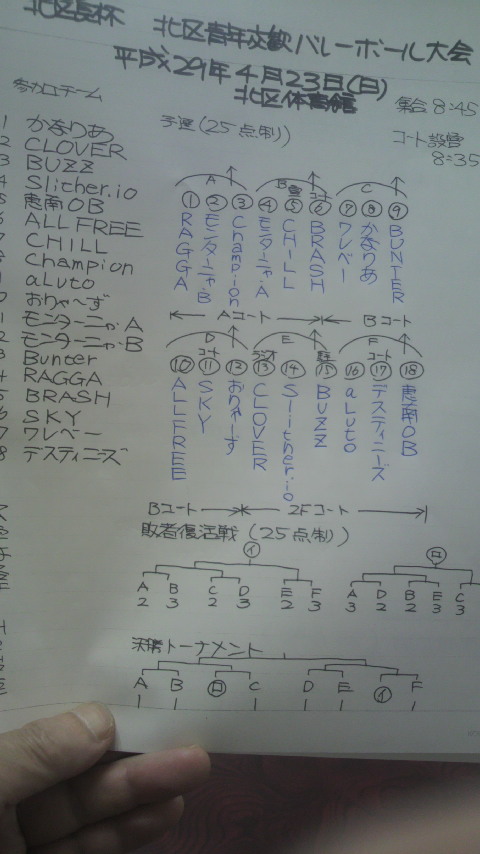 北区長杯 北区青年交歓バレーボール大会
平成29年4月23日(日)
北区体育館
集合 8:45
コート設営
8:35
参加チーム
1 かなりあ
2 CLOVER
3 BUZZ
4 Slither.io
5 恵南OB
6 ALL FREE
7 CHILL
Champion
aLuto
おりゃ〜ず
1 モンターニャ・A
2 モンターニャ・B
3 Bunter
4 RAGGA
5 BRASH
6 SKY
7 ワレベー
8 デスティニーズ
予選(25点制)
A B C
① ② ③ ④ ⑤ ⑥ ⑦ ⑧ ⑨
RAGGA
モンターニャ・B
Champion
モンターニャ・A
CHILL
BRASH
ワレベー
かなりあ
BUNTER
Aコート Bコート
D E F
⑩ ⑪ ⑫ ⑬ ⑭ ⑮ ⑯ ⑰ ⑱
ALL FREE
SKY
おりゃーず
CLOVER
Slither.io
BUZZ
aLuto
デスティニーズ
恵南OB
Bコート 2Fコート
敗者復活戦(25点制)
イ ロ
A B C D E F A D B E C
2 3 2 3 2 3 3 2 2 3 3
決勝トーナメント
A B ロ C D E イ F